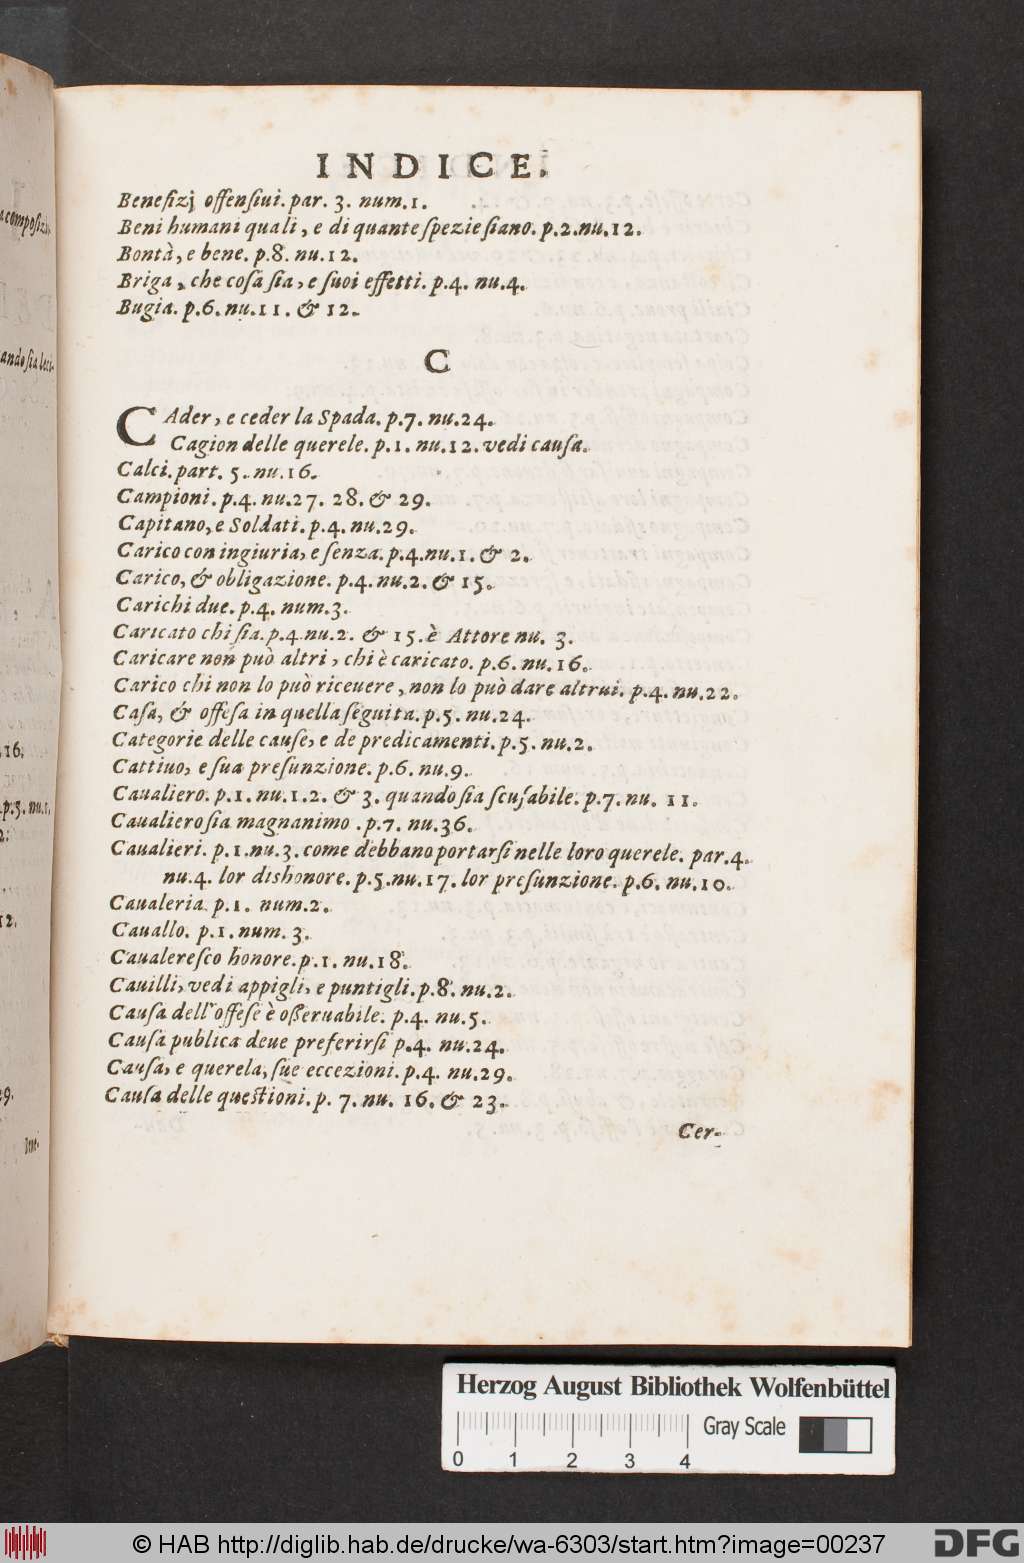 INDICE.
Benefizj offensiui. par. 3. num. 1.
Beni humani quali, e di quante spezie siano. p. 2. nu. 12.
Bontà, e bene. p. 8. nu. 12.
Briga, che cosa sia, e suoi effetti. p. 4. nu. 4.
Bugia. p. 6. nu. 11. & 12.
C
CAder, e ceder la Spada. p. 7. nu. 24.
Cagion delle querele. p. 1. nu. 12. vedi causa.
Calci. part. 5. nu. 16.
Campioni. p. 4. nu. 27. 28. & 29.
Capitano, e Soldati. p. 4. nu. 29.
Carico con ingiuria, e senza. p. 4. nu. 1. & 2.
Carico, & obligazione. p. 4. nu. 2. & 15.
Carichi due. p. 4. num. 3.
Caricato chi sia. p. 4 nu. 2. & 15. è Attore nu. 3.
Caricare non può altri, chi è caricato. p. 6. nu. 16.
Carico chi non lo può riceuere, non lo può dare altrui. p. 4. nu. 22.
Casa, & offesa in quella seguita. p. 5. nu. 24.
Categorie delle cause, e de predicamenti. p. 5. nu. 2.
Cattiuo, e sua presunzione. p. 6. nu. 9.
Caualiero. p. 1. nu. 1. 2. & 3. quando sia scusabile. p. 7. nu. 11.
Caualiero sia magnanimo. p. 7. nu. 36.
Caualieri. p. 1. nu. 3. come debbano portarsi nelle loro querele. par. 4.
nu. 4. lor dishonore. p. 5. nu. 17. lor presunzione. p. 6. nu. 10.
Caualeria p. 1. num. 2.
Cauallo. p. 1. num. 3.
Caualeresco honore. p. 1. nu. 18.
Cauilli, vedi appigli, e puntigli. p. 8. nu. 2.
Causa dell'offese è osseruabile. p. 4. nu. 5.
Causa publica deue preferirsi p. 4. nu. 24.
Causa, e querela, sue eccezioni. p. 4. nu. 29.
Causa delle questioni. p. 7. nu. 16. & 23.
Cer-
Herzog August Bibliothek Wolfenbüttel
Gray Scale
0 1 2 3 4
© HAB http://diglib.hab.de/drucke/wa-6303/start.htm?image=00237
DFG